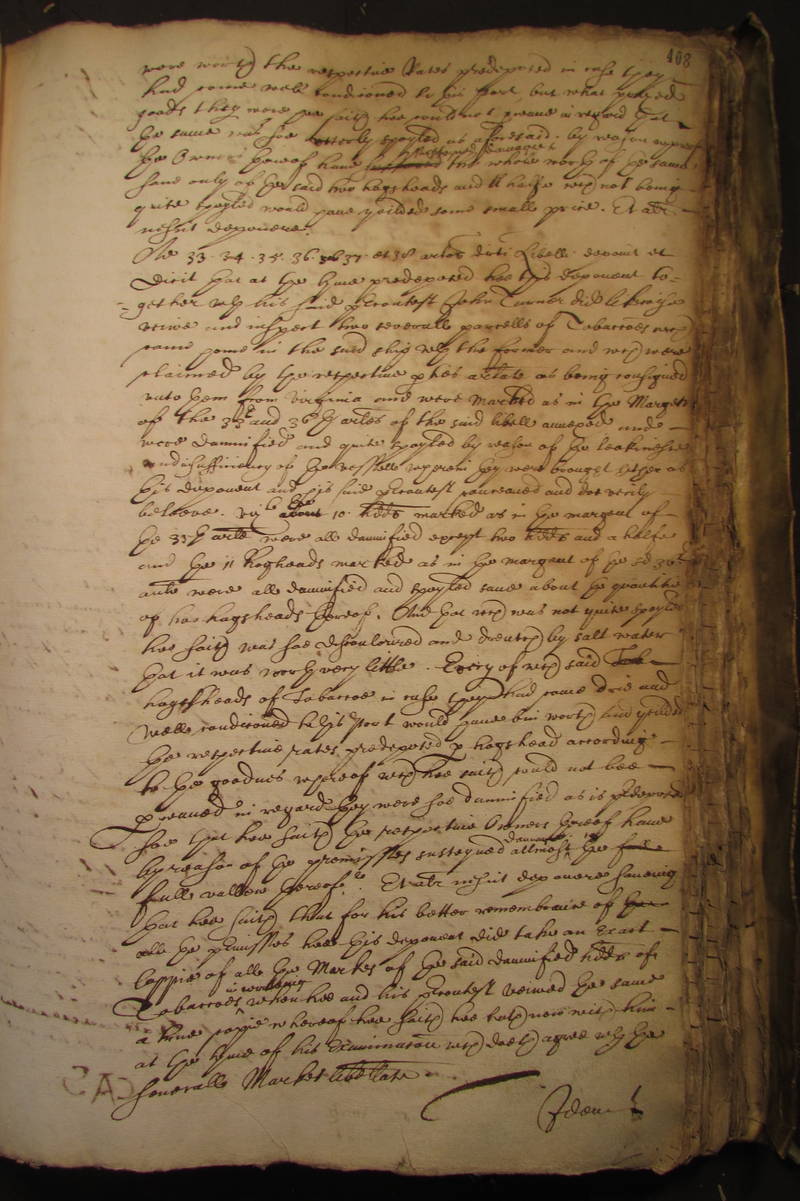 108
were worth the respective Rates predeposed in case they
had come well conditioned to this port but what prices
goods they were hee saith hee could not in regard that
the same was soe utterly spoyled as aforesaid. by reason whereof
the Owners thereof have the whole worth of the same
save only of the said two hogsheads and a halfe wch not being
quite spoyled would have yeilded some small price. Et aliter
nescit deponere.
Ad 33. 34. 35. 36. 37. et 38 artos dicti Libelli deponit et
Dicit That at the tyme predeposed hee this deponent to=
=gether with his said Contest John Turner did likewise
veiwe and inspect two severall parcells of Tobaccoes wch
came home in the said ship with the former and wch were
claimed by the respective ptes arlate as being consigned
unto them from Virginia and were marked as in the Margent
of the 33th and 36th artles of the said libell annexed and
were damnified and quite spoyled by reason of the leakinesse
and insufficiency of the vessell wherein they were brought hither as
this deponent and his said Contest conceaved and doe verily
beleeve. vizt the 10 hhds marked as in the margent of
the 33th arle were all damnified except two hhds and a halfe
and the 11 hogsheads marked as in the margent of the 36th
arle were all damnified and spoyled save about the quantitie
of two hogsheads thereof. And that wch was not quite spoyled
hee saith was soe discouloured and drencht by salt water
that it was worth very little. Every of wch said
hogsheads of Tobaccoe in case they had come drie and
well conditioned to this Port would have bin worth and yeilded
the respective rates predeposed p hogshead according
to the goodnes whereof wch hee saith could not bee
preaved in regard they were soe damnified as is predeposed
soe that hee saith the respective Owners thereof have
by reason of the premisses susteyned damage allmost to the
full vallew thereof. Et aliter nescit deponere saveing
that hee saith that for his better remembrance of
all the premisses hee this deponent did take an Exact
Coppie of all the Markes of the said damnified hhds of
Tobaccoes in writeing when hee and his Contest veiwed the same
a true coppie whereof hee saith hee hath now with him
at the tyme of his Examinacon wch doeth agree with the
severall Markes arlate
Idem